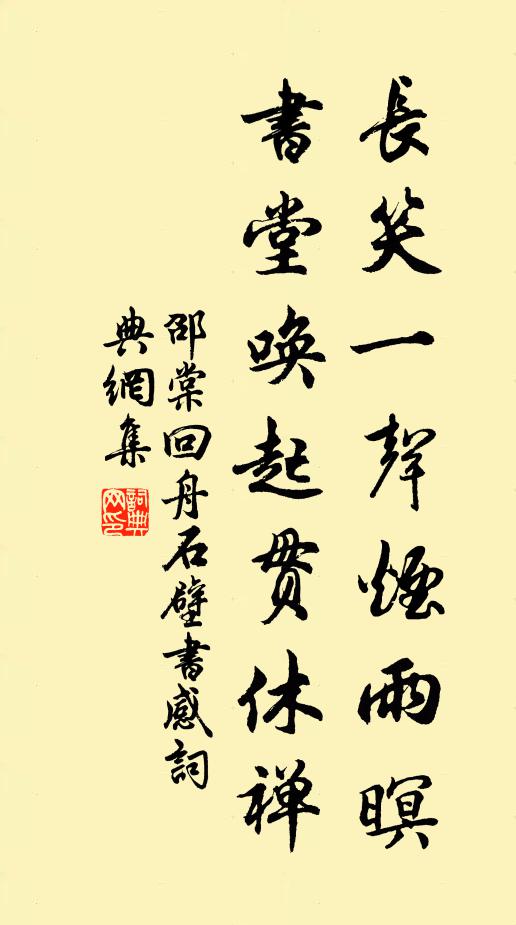 長笑一聲煙雨暝
書堂喚起貫休禅
邵棠回舟石壁書感詞
典網集
詞典網印